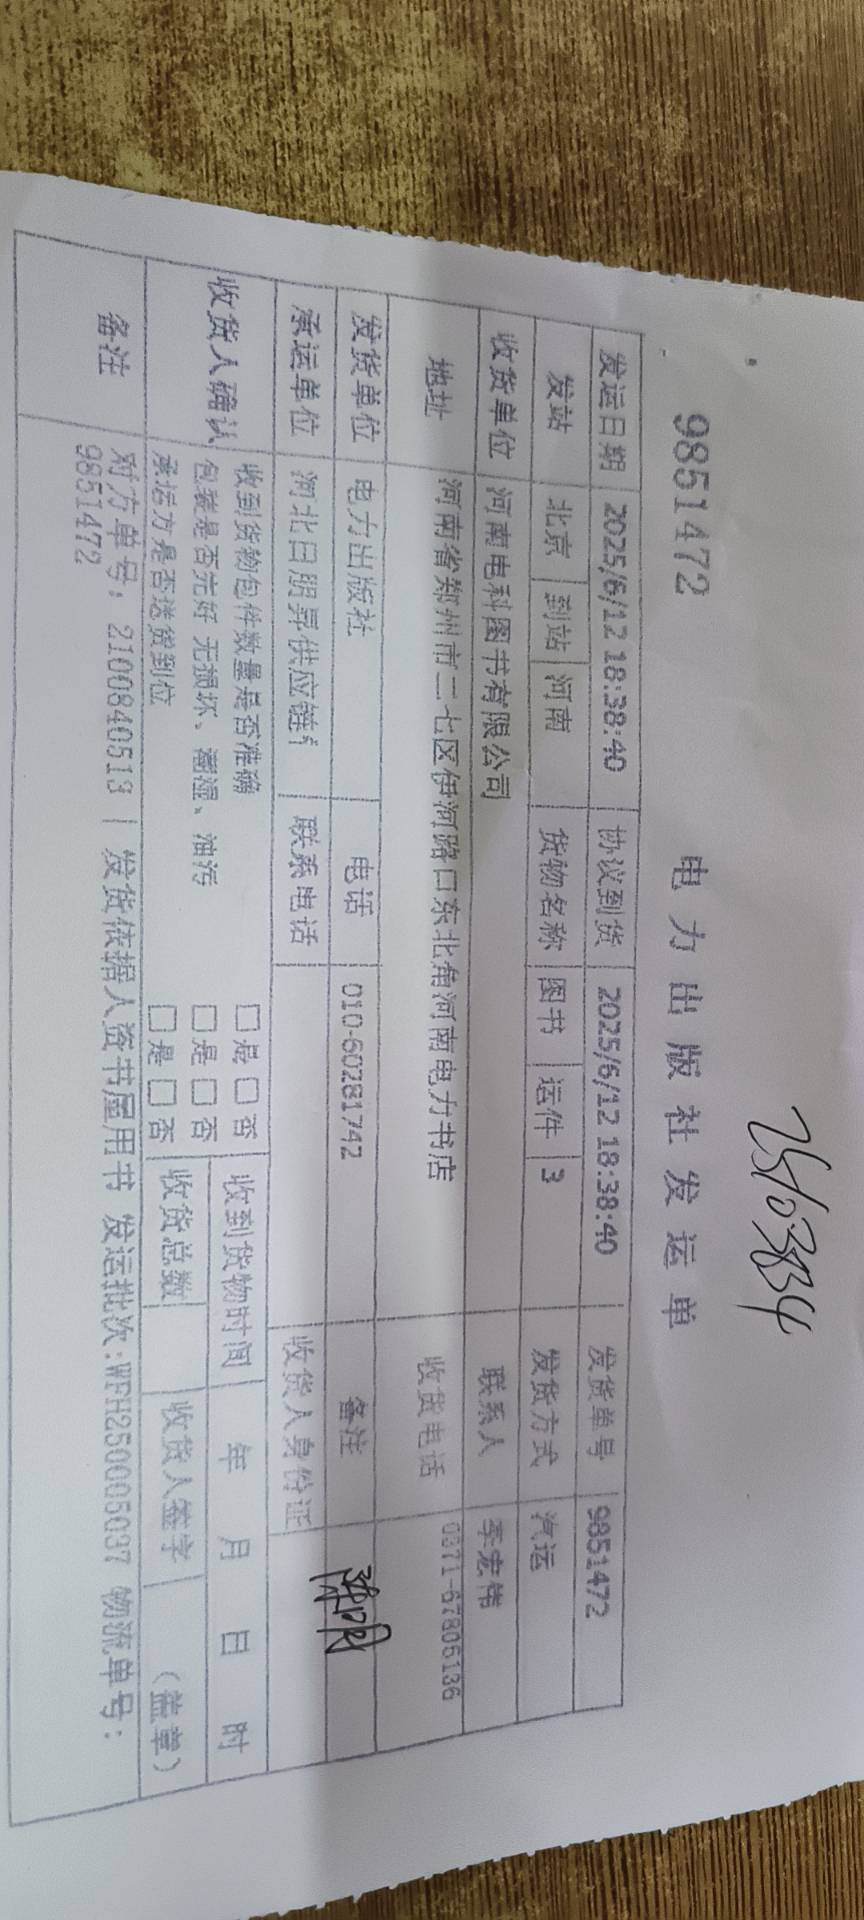 25103834
9851472
电力出版社发运单
发运日期 2025/6/12 18:38:40 协议到货 2025/6/12 18:38:40 发货单号 9851472
发站 北京 到站 河南 货物名称 图书 运件 3 发货方式 汽运
收货单位 河南电科图书有限公司 联系人 李宏伟
地址 河南省郑州市二七区伊河路口东北角河南电力书店 收货电话 0371-67805136
发货单位 电力出版社 电话 010-60281742 备注
承运单位 河北日朋昇供应链 联系电话 收货人身份证
收货人确认 收到货物包件数量是否准确 □是□否 收到货物时间 年 月 日 时
包装是否完好 无损坏、潮湿、油污 □是□否
承运方是否送货到位 □是□否 收货总数 收货人签字 (盖章)
备注 对方单号：2100840513 | 发货依据人资书屋用书 发运批次:WFH250005037 物流单号：
9851472